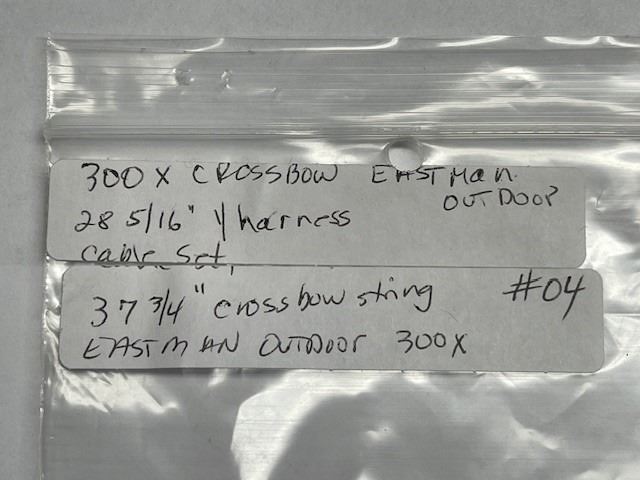 300 X CROSSBOW EASTMAN
OUTDOOR
28 5/16" Y harness
Cable Set,
37 3/4" crossbow string #04
EASTMAN OUTDOOR 300X